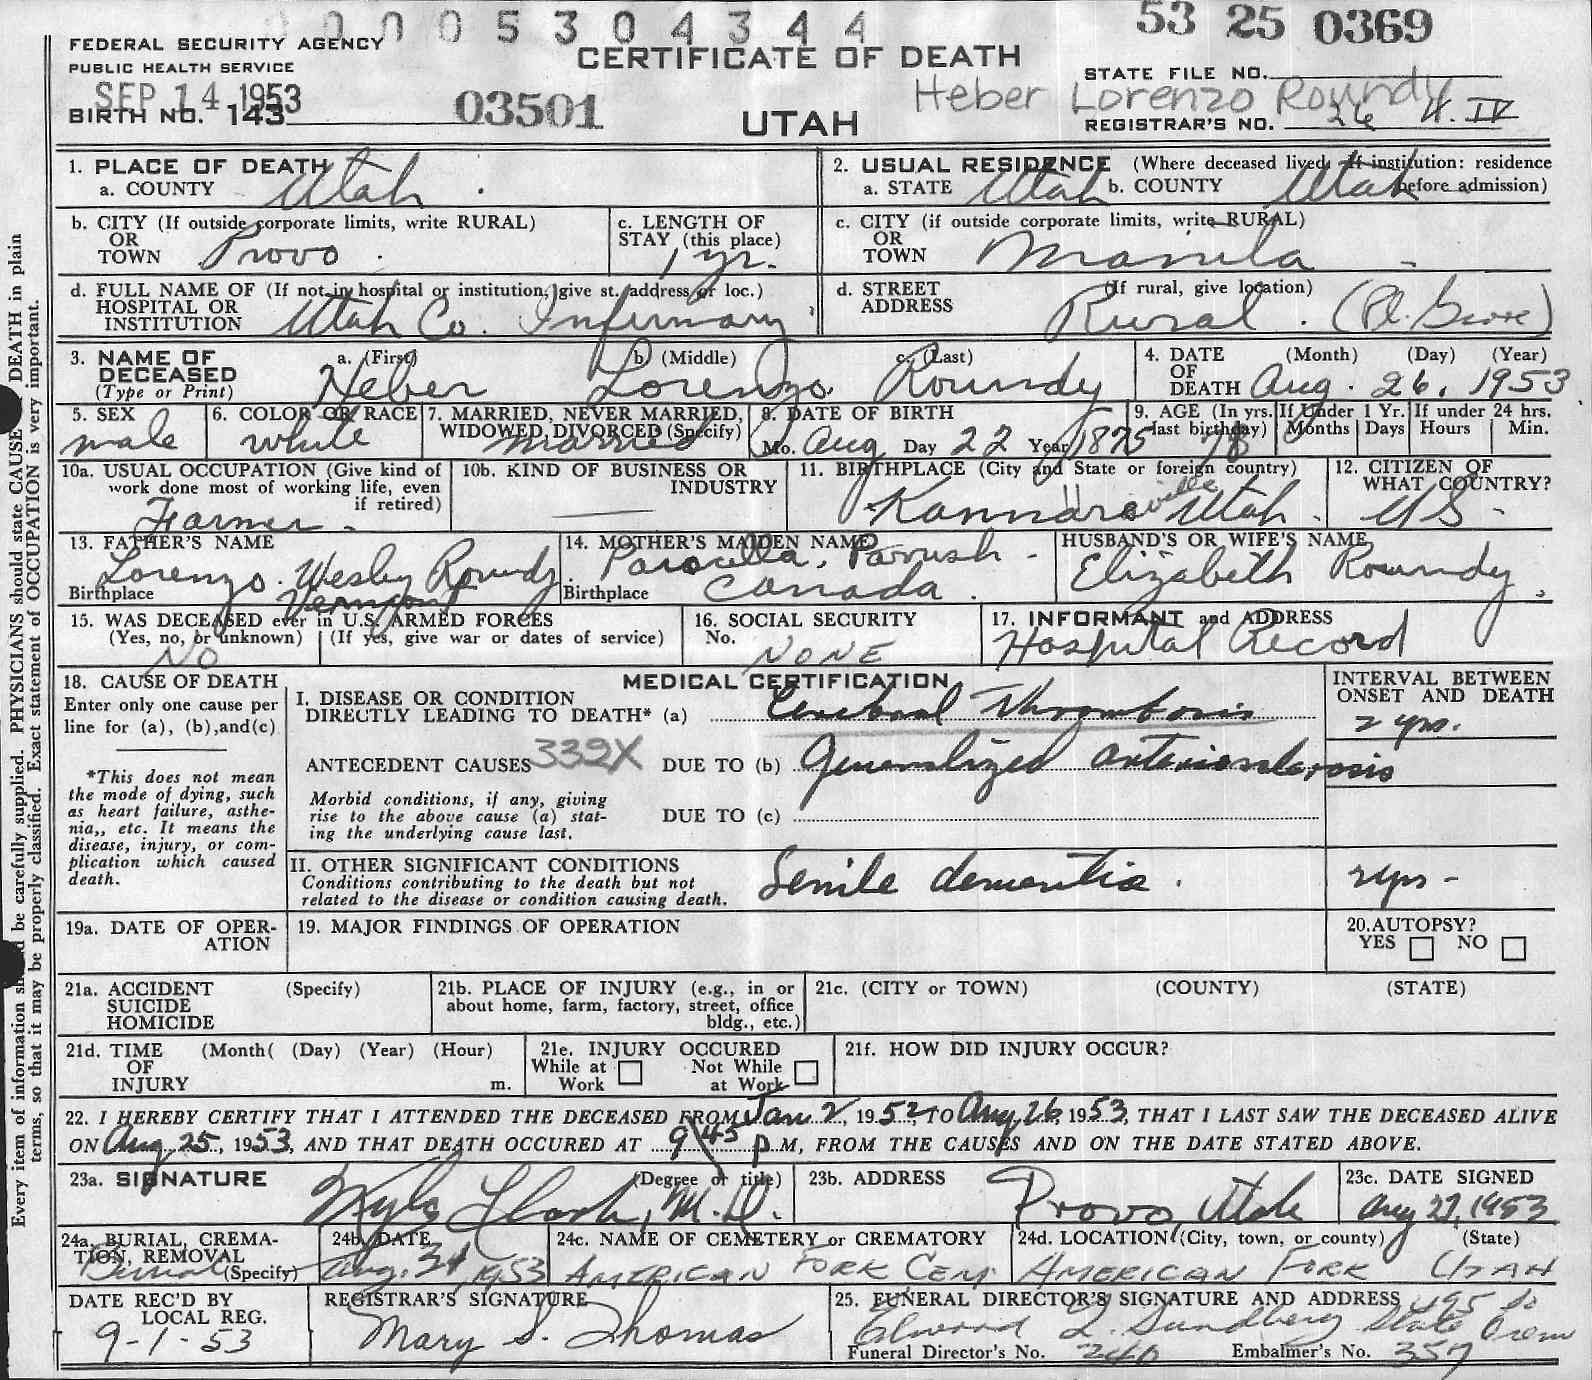 0 0 0 0 5 3 0 4 3 4 4
53 25 0369
FEDERAL SECURITY AGENCY
PUBLIC HEALTH SERVICE
CERTIFICATE OF DEATH
STATE FILE NO.
SEP 14 1953
Heber Lorenzo Roundy
BIRTH NO. 143
03501
UTAH
REGISTRAR'S NO. 26 H. IV
1. PLACE OF DEATH
a. COUNTY Utah
2. USUAL RESIDENCE (Where deceased lived. If institution: residence before admission)
a. STATE Utah b. COUNTY Utah
b. CITY (If outside corporate limits, write RURAL)
OR
TOWN Provo
c. LENGTH OF
STAY (this place)
1 yr.
c. CITY (if outside corporate limits, write RURAL)
OR
TOWN Manila
d. FULL NAME OF (If not in hospital or institution, give st. address or loc.)
HOSPITAL OR
INSTITUTION Utah Co. Infirmary
d. STREET (If rural, give location)
ADDRESS Rural. (Pl. Grove)
3. NAME OF
DECEASED
(Type or Print)
a. (First) b (Middle) c. (Last)
Heber Lorenzo Roundy
4. DATE (Month) (Day) (Year)
OF
DEATH Aug. 26, 1953
5. SEX
male
6. COLOR OR RACE
white
7. MARRIED, NEVER MARRIED,
WIDOWED, DIVORCED (Specify)
married
8. DATE OF BIRTH
Mo. Aug Day 22 Year 1875
9. AGE (In yrs.
last birthday)
78
If Under 1 Yr.
Months Days
If under 24 hrs.
Hours Min.
10a. USUAL OCCUPATION (Give kind of
work done most of working life, even
if retired)
Farmer
10b. KIND OF BUSINESS OR
INDUSTRY
11. BIRTHPLACE (City and State or foreign country)
Kannaraville Utah
12. CITIZEN OF
WHAT COUNTRY?
US
13. FATHER'S NAME
Lorenzo Wesley Roundy
Birthplace Vermont
14. MOTHER'S MAIDEN NAME
Parrish
Birthplace Canada
HUSBAND'S OR WIFE'S NAME
Elizabeth Roundy
15. WAS DECEASED ever in U.S. ARMED FORCES
(Yes, no, or unknown) (If yes, give war or dates of service)
NO
16. SOCIAL SECURITY
No.
NONE
17. INFORMANT and ADDRESS
Hospital Record
18. CAUSE OF DEATH
Enter only one cause per
line for (a), (b),and(c)
*This does not mean
the mode of dying, such
as heart failure, asthe-
nia,, etc. It means the
disease, injury, or com-
plication which caused
death.
MEDICAL CERTIFICATION
INTERVAL BETWEEN
ONSET AND DEATH
I. DISEASE OR CONDITION
DIRECTLY LEADING TO DEATH* (a) Cerebral Thrombosis
2 yrs.
ANTECEDENT CAUSES 332X DUE TO (b) Generalized arteriosclerosis
Morbid conditions, if any, giving
rise to the above cause (a) stat-
ing the underlying cause last.
DUE TO (c)
II. OTHER SIGNIFICANT CONDITIONS
Conditions contributing to the death but not
related to the disease or condition causing death.
Senile dementia.
2 yrs -
19a. DATE OF OPER-
ATION
19. MAJOR FINDINGS OF OPERATION
20.AUTOPSY?
YES NO
21a. ACCIDENT (Specify)
SUICIDE
HOMICIDE
21b. PLACE OF INJURY (e.g., in or
about home, farm, factory, street, office
bldg., etc.)
21c. (CITY or TOWN) (COUNTY) (STATE)
21d. TIME (Month( (Day) (Year) (Hour)
OF
INJURY m.
21e. INJURY OCCURED
While at Work Not While at Work
21f. HOW DID INJURY OCCUR?
22. I HEREBY CERTIFY THAT I ATTENDED THE DECEASED FROM Jan. 2, 1952, TO Aug. 26, 1953, THAT I LAST SAW THE DECEASED ALIVE
ON Aug. 25, 1953, AND THAT DEATH OCCURED AT 9 45 p.M, FROM THE CAUSES AND ON THE DATE STATED ABOVE.
23a. SIGNATURE (Degree or title)
M.D.
23b. ADDRESS
Provo, Utah
23c. DATE SIGNED
Aug 27, 1953
24a. BURIAL, CREMA-
TION, REMOVAL
(Specify)
Burial
24b. DATE
Aug. 31, 1953
24c. NAME OF CEMETERY or CREMATORY
AMERICAN FORK CEM.
24d. LOCATION (City, town, or county) (State)
AMERICAN FORK UTAH
DATE REC'D BY
LOCAL REG.
9-1-53
REGISTRAR'S SIGNATURE
Mary S. Thomas
25. FUNERAL DIRECTOR'S SIGNATURE AND ADDRESS 495 So
Elwood L. Sundberg State Orem
Funeral Director's No. 240 Embalmer's No. 357
Every item of information should be carefully supplied. PHYSICIANS should state CAUSE OF DEATH in plain
terms, so that it may be properly classified. Exact statement of OCCUPATION is very important.